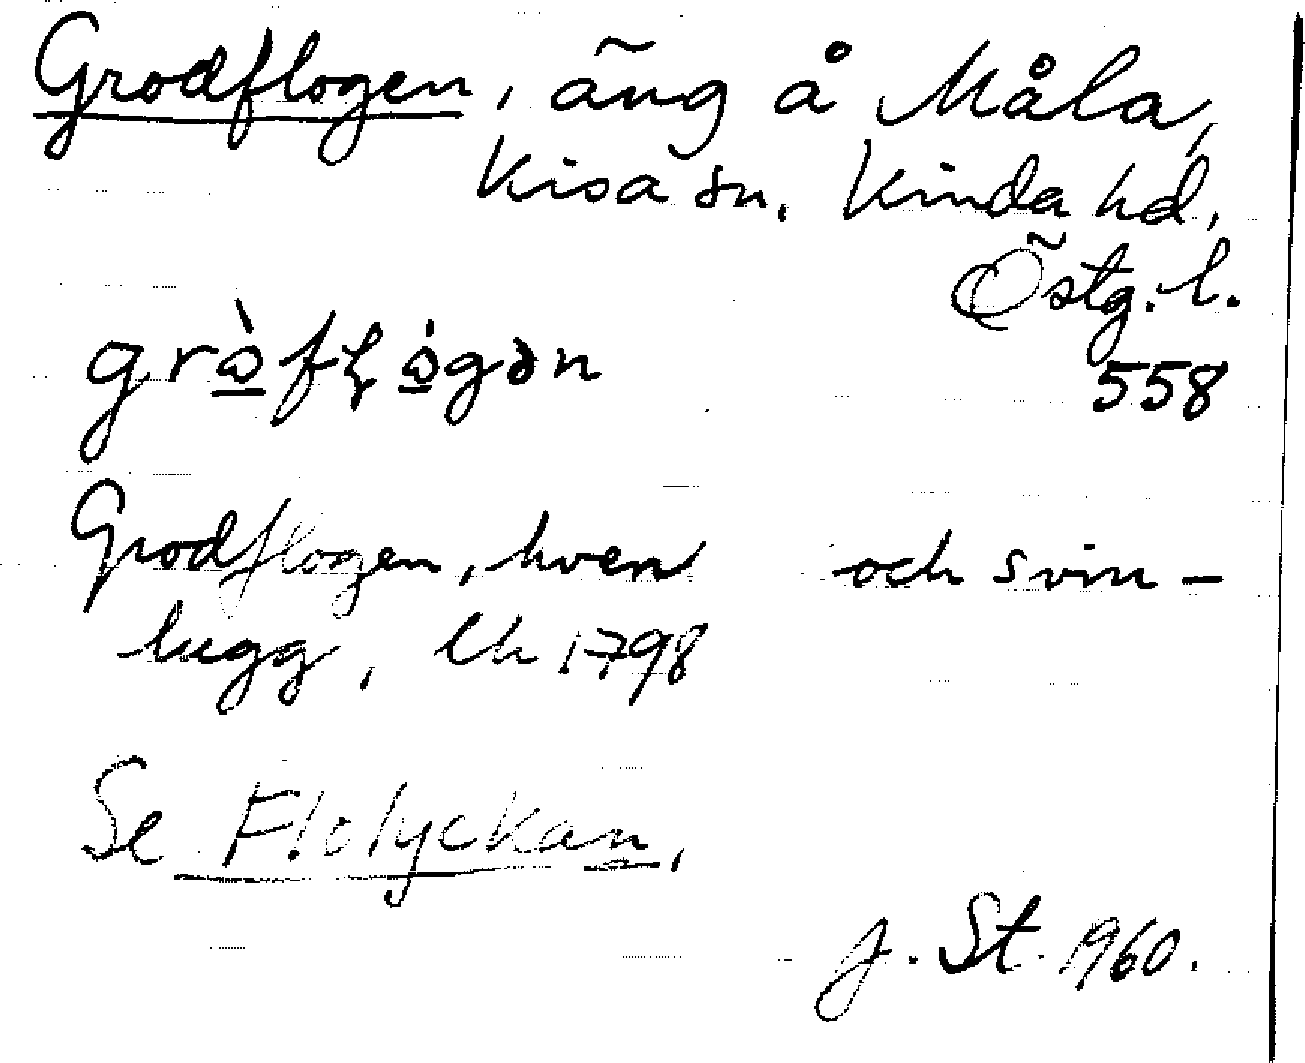 Grodflogen, äng å Måla,
Kisa sn. Kinda hd.
Östg. l.
558
Grodflogen, hven och svin-
lugg, Lh 1798
Se Flolyckan.
J. St. 1960.